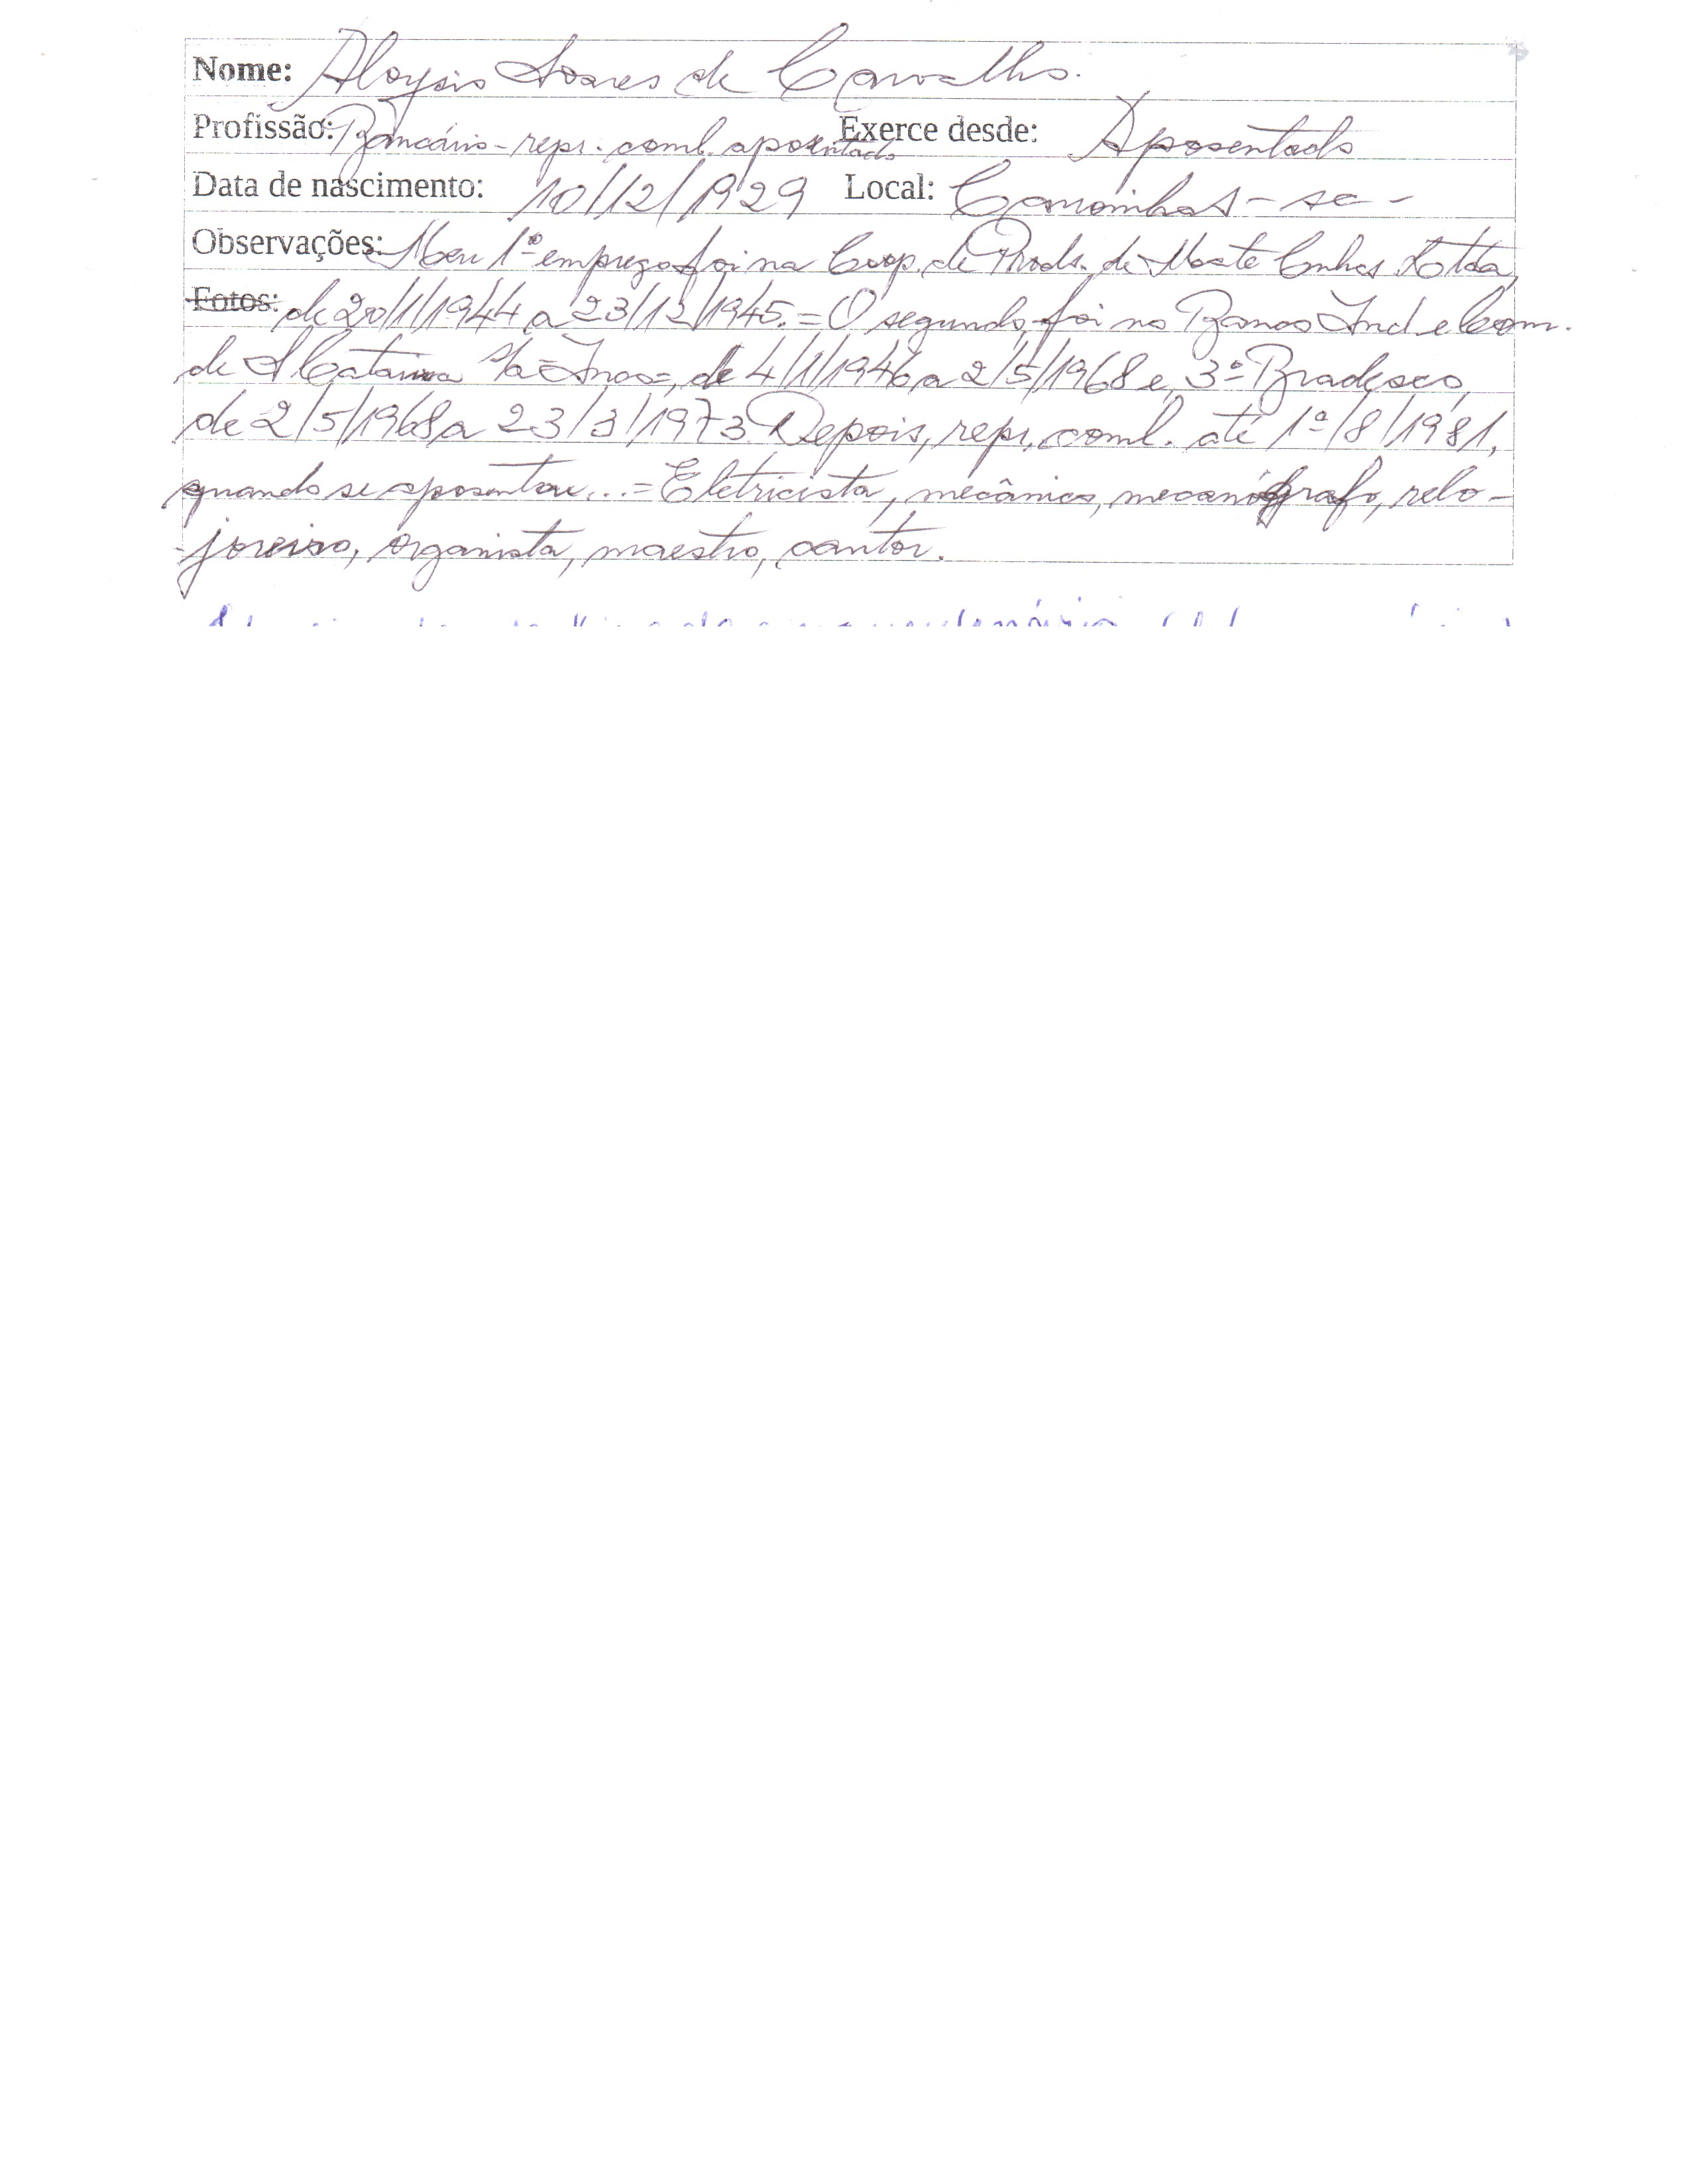 Nome: Aloysio Soares de Carvalho.
Profissão: Bancário - repr. coml. aposentado Exerce desde: Aposentado
Data de nascimento: 10/12/1929 Local: Canoinhas - sc -
Observações: Meu 1º emprego foi na Coop. de Prods. de Mate Cnhas Ltda,
Fotos: de 20/1/1944 a 23/12/1945. = O segundo, foi no Banco Ind e Com.
de S Catarina S/a = Inco =, de 4/1/1946 a 2/5/1968 e, 3º Bradesco,
de 2/5/1968 a 23/3/1973. Depois, repr. coml. até 1º/8/1981,
quando se aposentou... = Eletricista, mecânico, mecanógrafo, relo-
joeiro, organista, maestro, cantor.